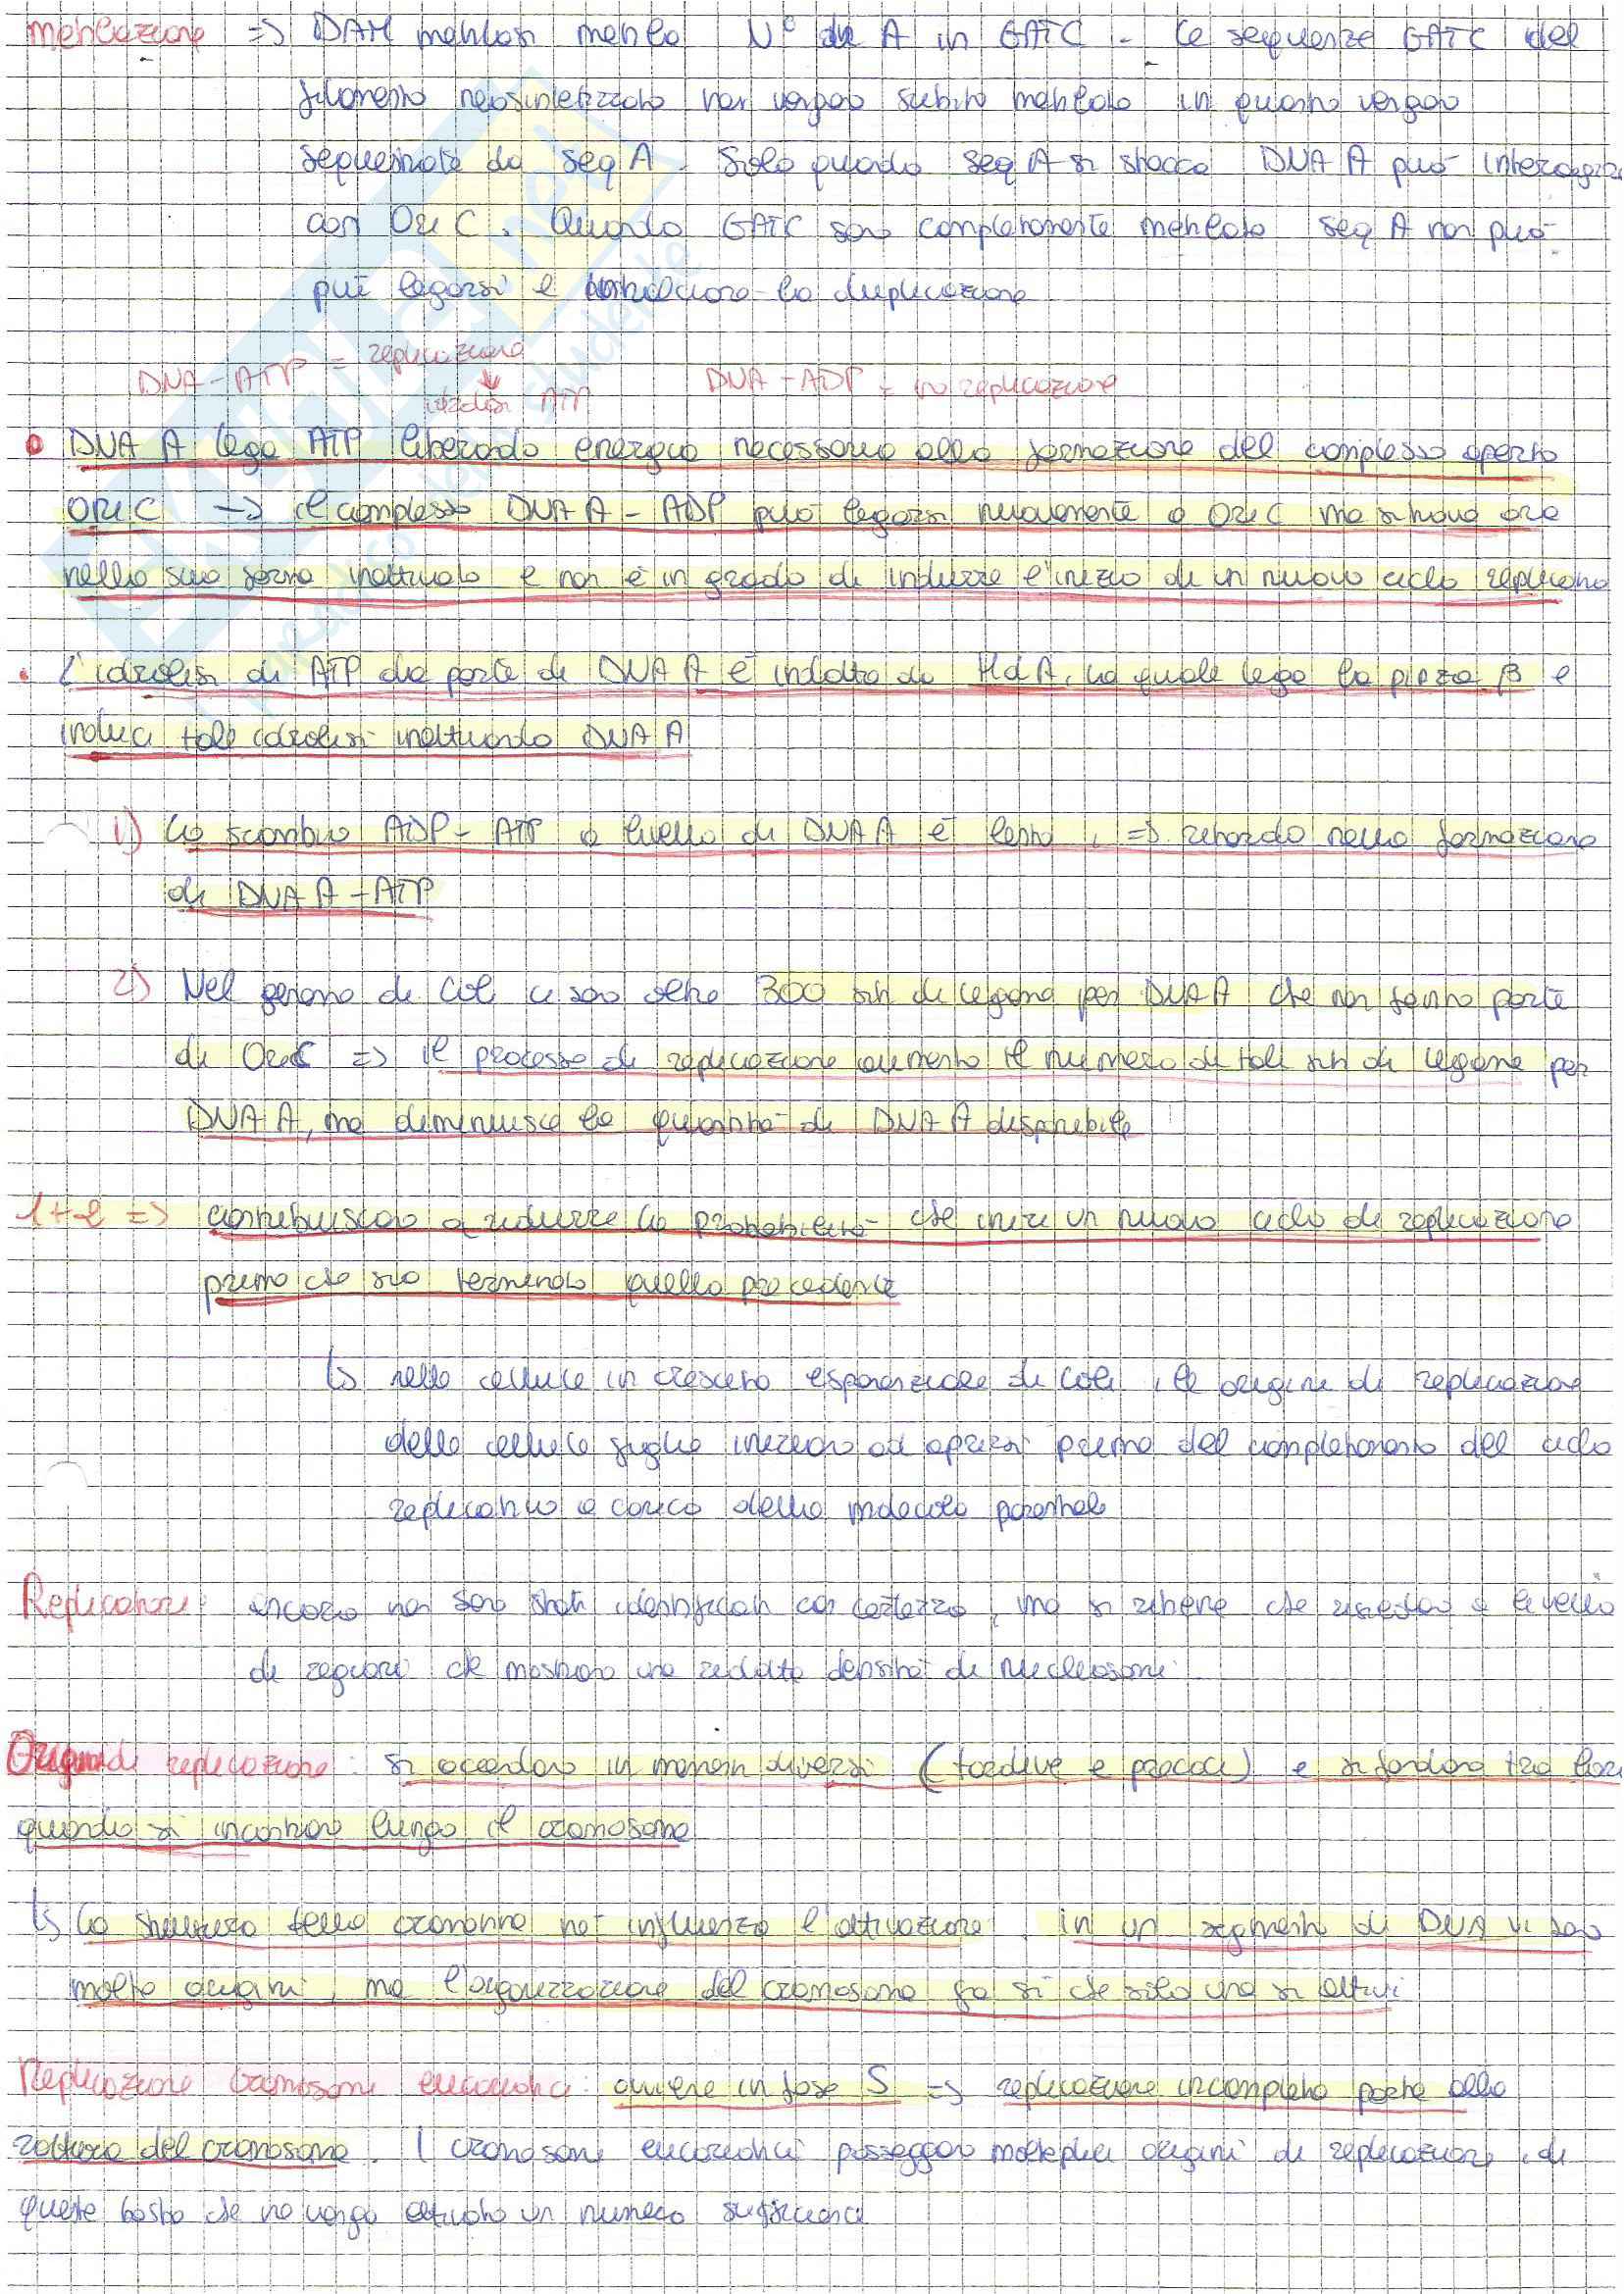 Metilazione => DAM metilasi metila N° di A in GATC. Le sequenze GATC del
filamento neosintetizzato non vengono subito metilate in quanto vengono
sequestrate da seqA. Solo quando seqA si stacca DNA A può interagire
con OriC. Quando GATC sono completamente metilate seqA non può
più legarsi e la duplicazione
DNA-ATP = replicazione DNA-ADP = no replicazione
idrolisi ATP
• DNA A lega ATP liberando energia necessaria alla formazione del complesso aperto
OriC -> il complesso DNA A - ADP può legarsi nuovamente a OriC ma si trova ora
nella sua forma inattivata e non è in grado di indurre l'inizio di un nuovo ciclo replicativo
• L'idrolisi di ATP da parte di DNA A è indotta da HdA, la quale lega la pinza β e
induce tale idrolisi inattivando DNA A
1) Lo scambio ADP-ATP a livello di DNA A è lento, => ritardo nella formazione
di DNA A-ATP
2) Nel genoma di Coli ci sono oltre 300 siti di legame per DNA A che non fanno parte
di OriC => il processo di replicazione aumenta il numero di tali siti di legame per
DNA A, ma diminuisce la quantità di DNA A disponibile
1+2 => contribuiscono a ridurre la probabilità che inizi un nuovo ciclo di replicazione
prima che sia terminato quello precedente
↳ nelle cellule in crescita esponenziale di Coli, le origini di replicazione
delle cellule figlie iniziano ad aprirsi prima del completamento del ciclo
replicativo a carico della molecola parentale
Replicatori: ancora non sono stati identificati con certezza, ma si ritiene che risiedano a livello
di regioni che mostrano una ridotta densità di nucleosomi.
Origini di replicazione: si accendono in momenti diversi (tardive e precoci) e si fondono tra loro
quando si incontrano lungo il cromosoma
↳ La struttura della cromatina ne influenza l'attivazione. in un segmento di DNA vi sono
molte origini, ma l'organizzazione del cromosoma fa sì che solo una si attivi
Replicazione cromosomi eucariotici: avviene in fase S => replicazione incompleta porta alla
rottura del cromosoma. I cromosomi eucariotici posseggono molteplici origini di replicazione, di
queste basta che ne venga attivato un numero sufficiente